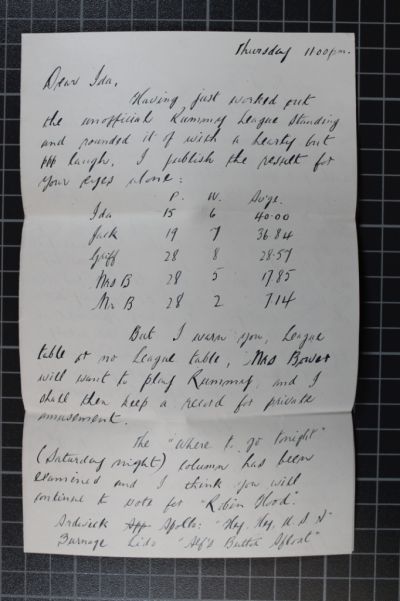 Thursday 11.00pm.
Dear Ida,
Having just worked out
the unofficial Rummy League standing
and rounded it of with a hearty but
laugh, I publish the result for
your eyes alone:
P. W. Av'ge.
Ida 15 6 40.00
Jack 19 7 36.84
Griff 28 8 28.57
Mrs B 28 5 17.85
Mr B 28 2 7.14
But I warn you, League
table or no League table, Mrs Bower
will want to play Rummy, and I
shall then keep a record for private
amusement.
The "Where to go tonight"
(Saturday night) column has been
examined and I think you will
continue to vote for "Robin Hood".
Ardwick Apollo: "Hey, Hey, U.S.A"
Burnage Lido "Alf's Button Afloat"